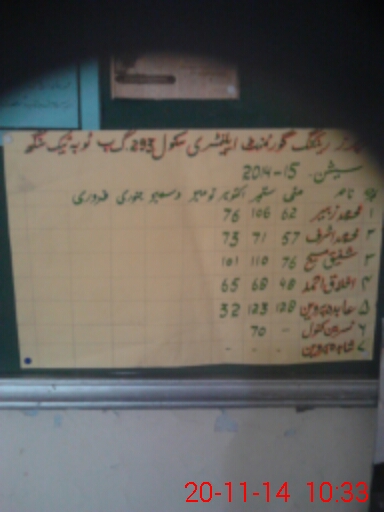 ٹیچرز رینکنگ گورنمنٹ ایلیمنٹری سکول 293 گ ب ٹوبہ ٹیک سنگھ
سیشن 2014-15
نام مئی ستمبر اکتوبر نومبر دسمبر جنوری فروری
۱ محمد زبیر 62 106 76
۲ محمد اشرف 57 71 73
۳ شفیق مسیح 76 110 101
۴ اخلاق احمد 48 68 65
۵ عابدہ پروین 128 123 32
۶ نسرین کنول - 70
۷ شاہدہ پروین - - -
20-11-14 10:33